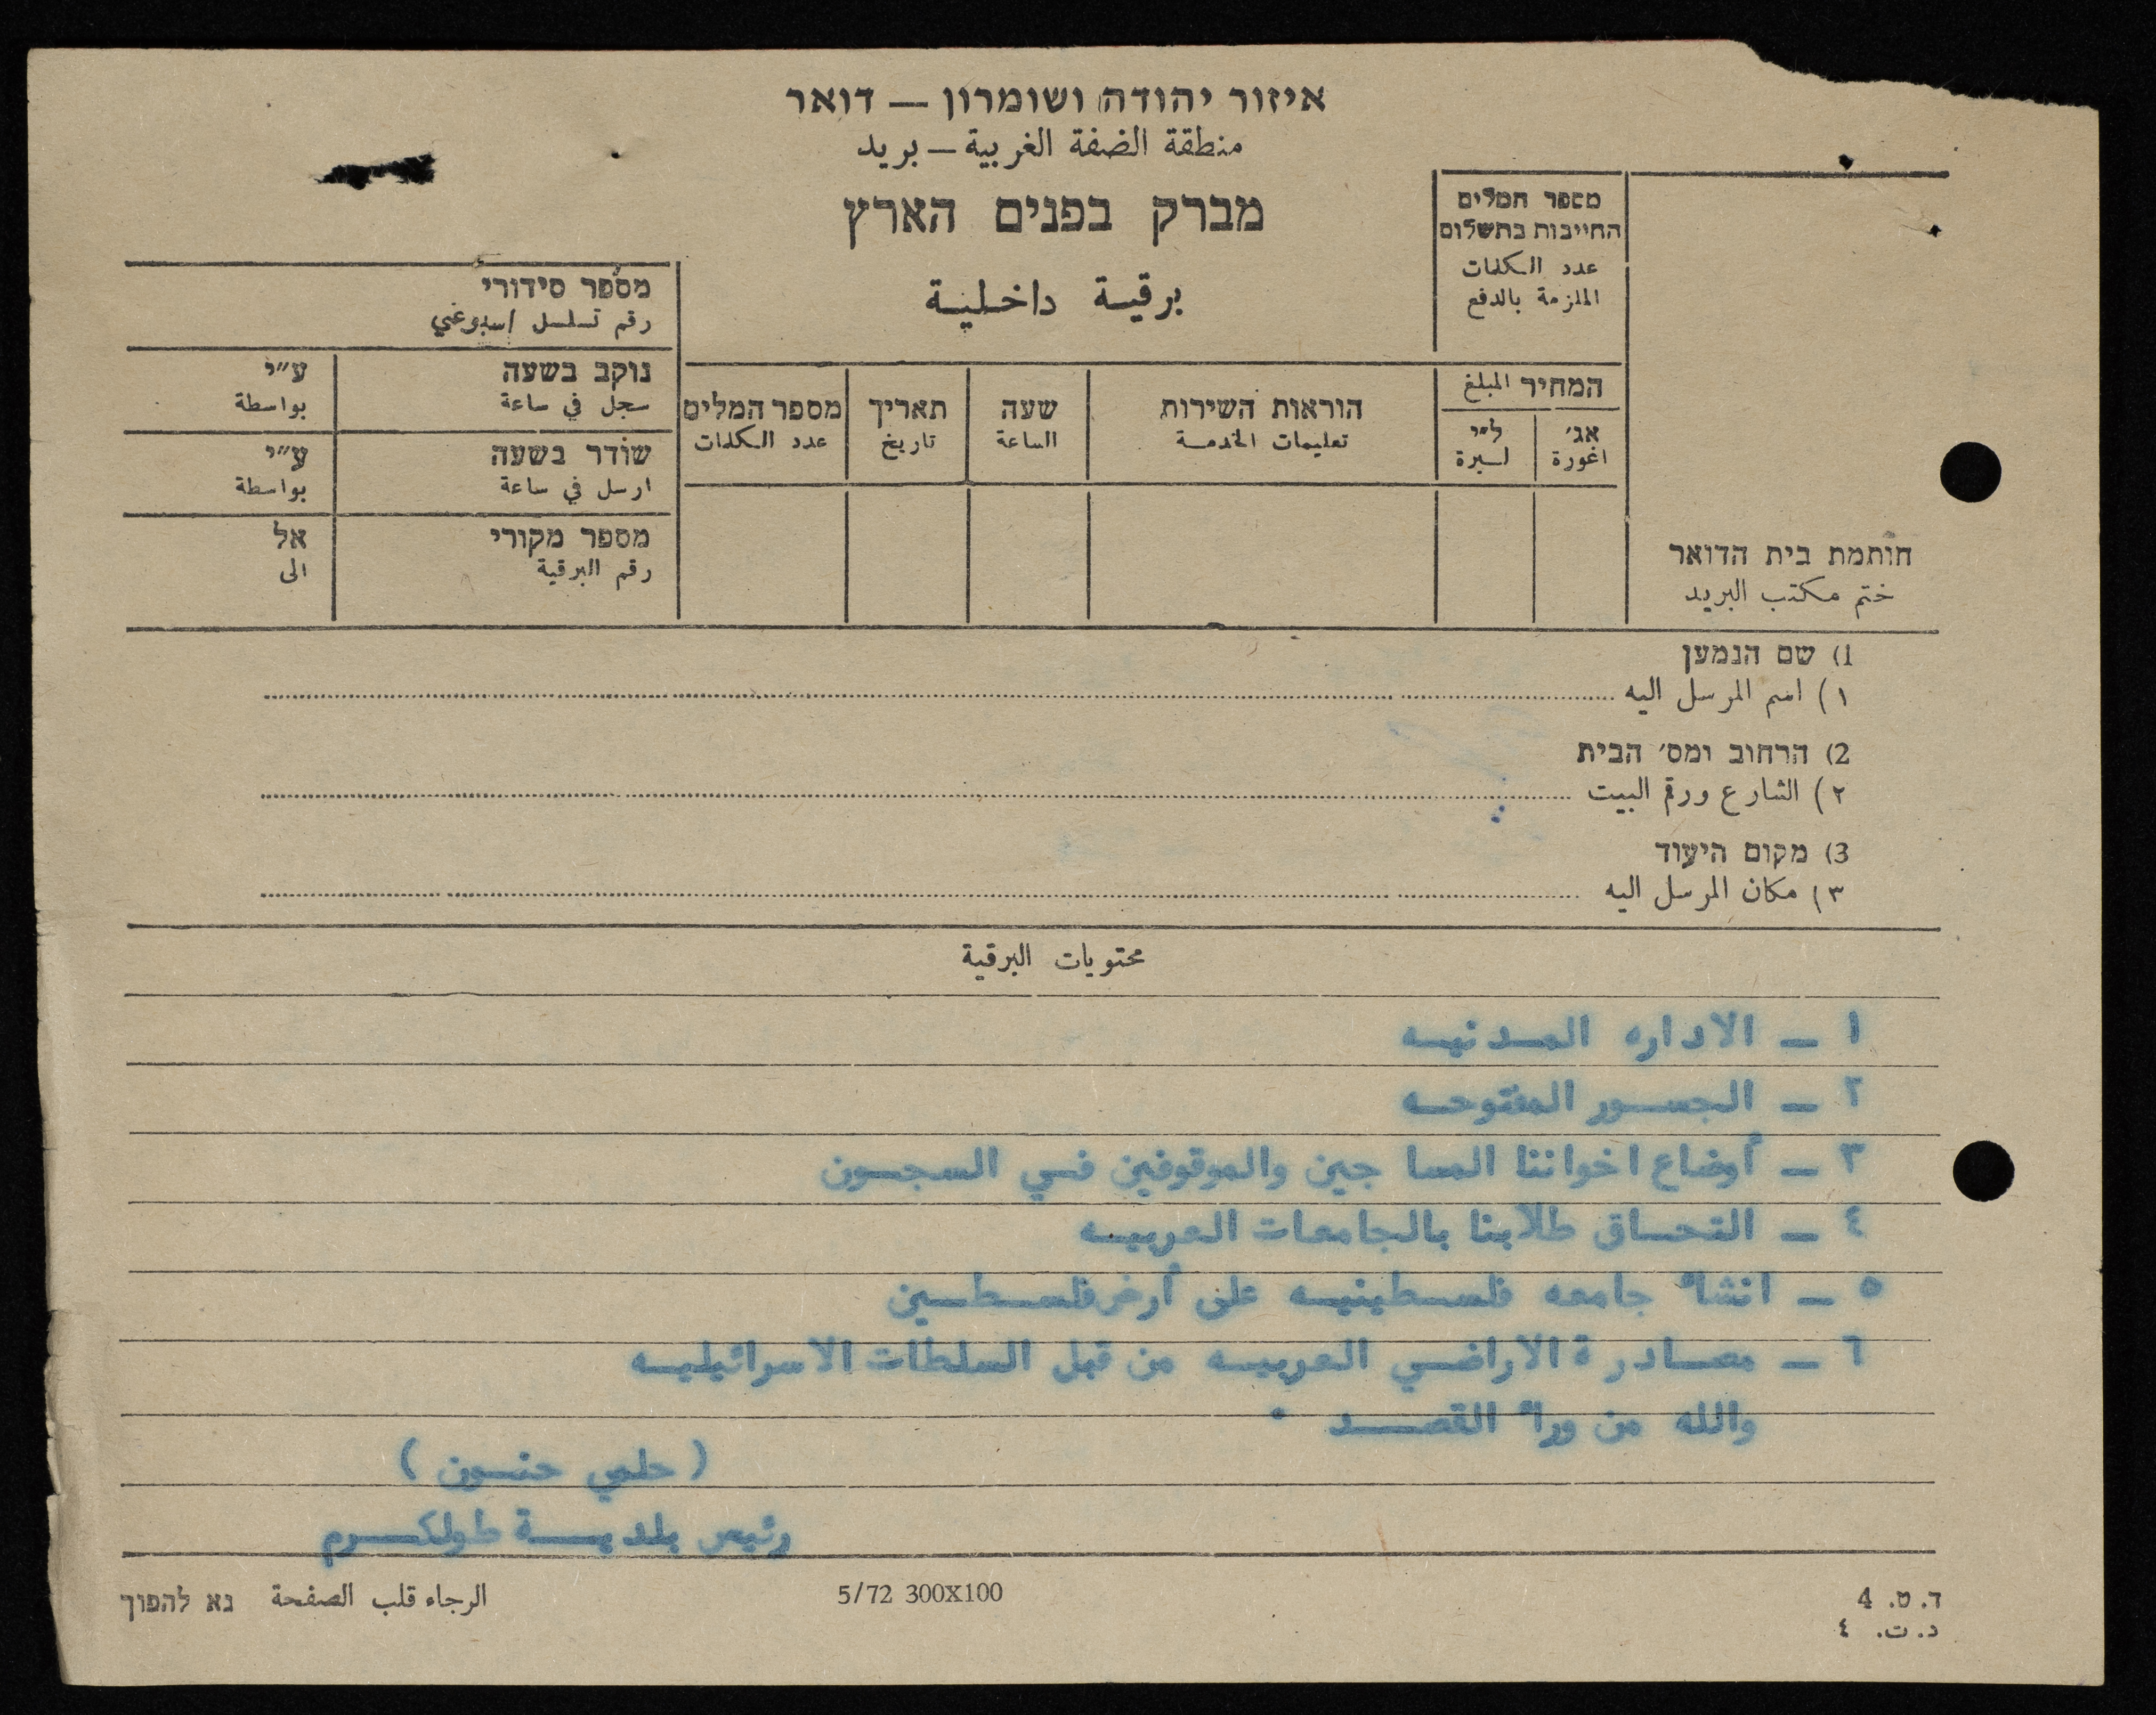 איזור יהודה ושומרון — דואר
منطقة الضفة الغربية — بريد
מברק בפנים הארץ
برقية داخلية
מספר המלים
החייבות בתשלום
عدد الكلمات
الملزمة بالدفع
מספר סידורי
رقم تسلسل اسبوعي
נוקב בשעה ע״י
سجل في ساعة بواسطة
שודר בשעה ע״י
ارسل في ساعة بواسطة
מספר מקורי אל
رقم البرقية الى
המחיר المبلغ
אג׳ ל״י
اغورة ليرة
הוראות השירות שעה תאריך מספר המלים
تعليمات الخدمة الساعة تاريخ عدد الكلمات
חותמת בית הדואר
ختم مكتب البريد
1) שם הנמען
١) اسم المرسل اليه
2) הרחוב ומס׳ הבית
٢) الشارع ورقم البيت
3) מקום היעוד
٣) مكان المرسل اليه
محتويات البرقية
١ — الاداره المدنيه
٢ — الجسور المفتوحه
٣ — أوضاع اخواننا المسا جين والموقوفين في السجون
٤ — التحاق طلابنا بالجامعات العربيه
٥ — انشاء جامعه فلسطينيه على أرض فلسطين
٦ — مصادرة الاراضي العربيه من قبل السلطات الاسرائيليه
والله من وراء القصد .
( حلمي حنون )
رئيس بلدية طولكرم
الرجاء قلب الصفحة נא להפוך
5/72 300X100
ד. ט. 4
د. ت. ٤